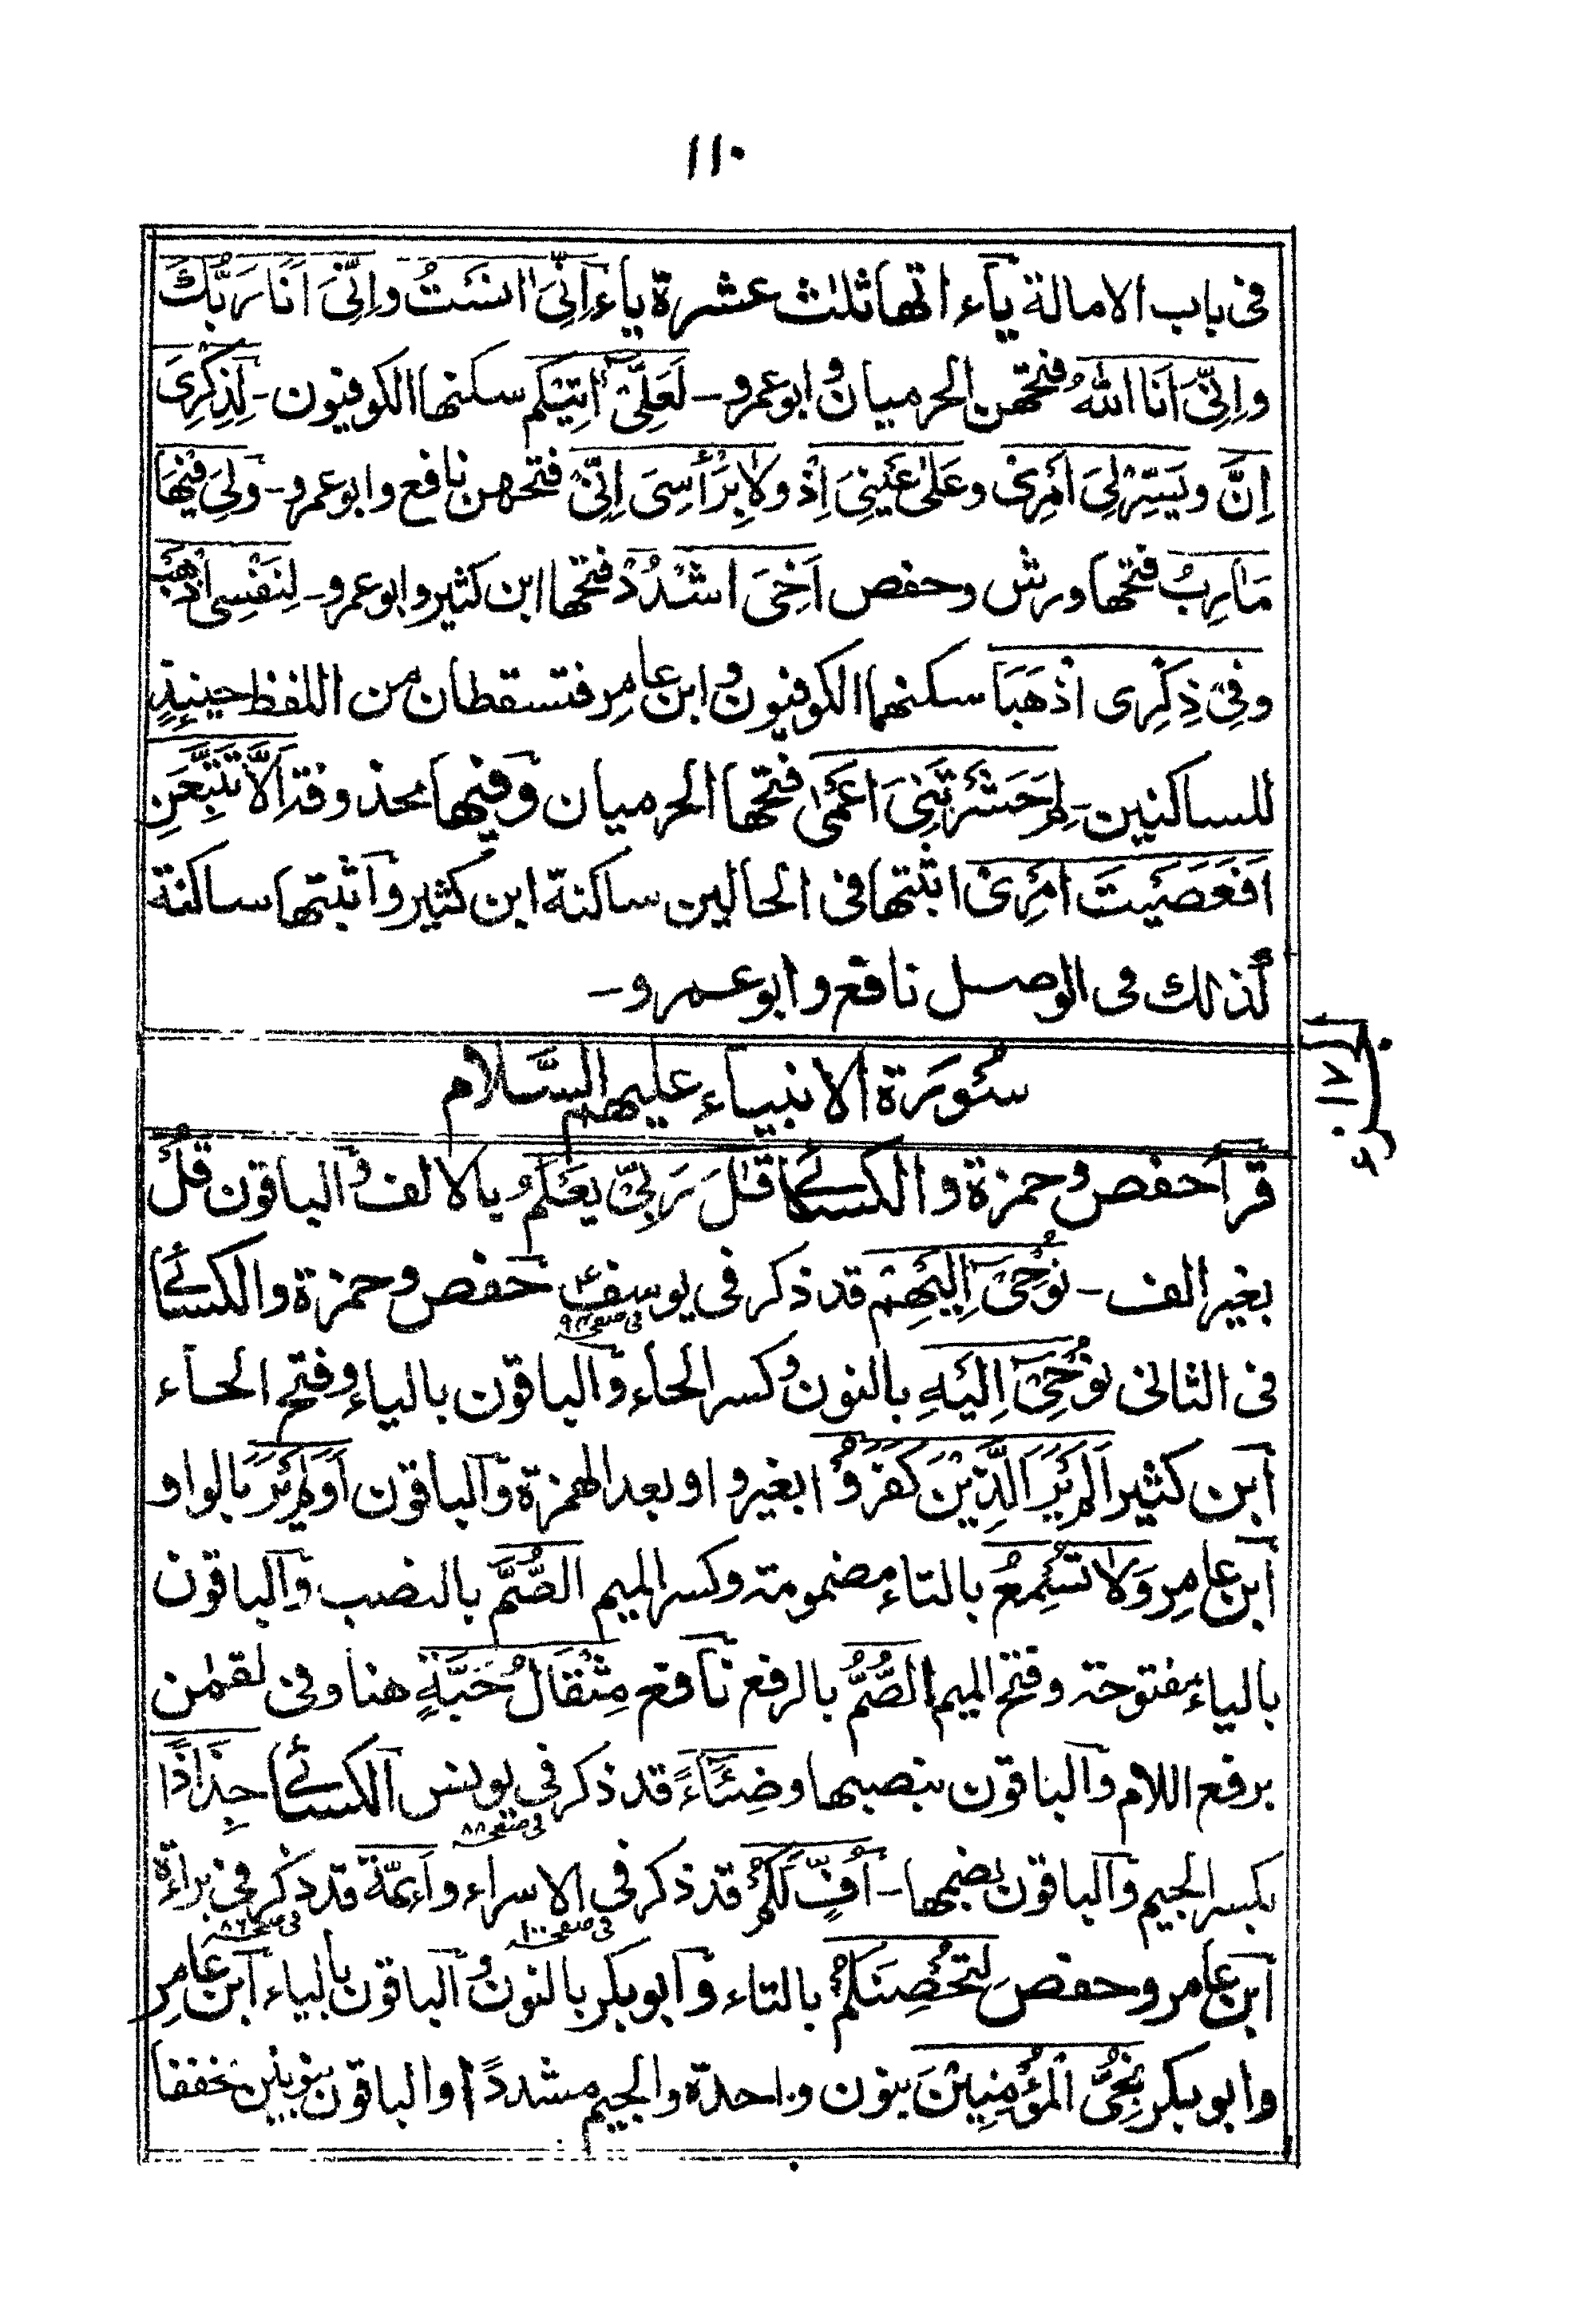 ١١٠
فى باب الامالة يآء اتها ثلٰث عشرة ياء اِنِّىَ اٰنَسْتُ واِنِّىَ اَنَا رَبُّكَ
واِنِّىَ اَنَا اللّٰهُ فتحهن الحرميان وابو عمرو - لَعَلِّىْ اٰتِيْكم سكنها الكوفيون - لِذِكْرِىَ
اِنَّ ويَسِّرْلِىَ اَمْرِىْ وعَلٰى عَيْنِىَ اِذْ ولَا بِرَأْسِىَ اِنِّىْ فتحهن نافع وابو عمرو - ولِىَ فِيْهَا
مَاٰرِبُ فتحها ورش وحفص اَخِىَ اشْدُدْ فتحها ابن كثير وابو عمرو - لِنَفْسِى اذْهَبْ
وفِىْ ذِكْرِى اذْهَبَا سكنهما الكوفيون وابن عامِر فتسقطان من اللفظ حينئذٍ
للساكنين - لِمَ حَشَرْتَنِىَ اَعْمٰى فتحها الحرميان وفيها محذوفة اَلَّا تَتَّبِعَنِ
اَفَعَصَيْتَ اَمْرِىْ اثبتها فى الحالين ساكنة ابن كثير واثبتها ساكنة
كذلك فى الوصل نافع وابو عمرو -
سُوْرَة الانبياء عليهم السَّلام
قرأ حفص وحمزة والكسائى قٰلَ رَبِّىْ يَعْلَمُ بالالف والباقون قُلْ
بغير الف - نُوْحِىْ اِلَيْهِمْ قد ذكر فى يوسف حفص وحمزة والكسائى
فى الثانى نُوْحِىْ اِلَيْهِ بالنون وكسر الحاء والباقون بالياء وفتح الحاء
ابن كثير اَلَمْ يَرَ الَّذِيْنَ كَفَرُوْا بغير واو بعد الهمزة والباقون اَوَلَمْ يَرَ بالواو
ابن عامِر وَلَا تُسْمِعُ بالتاء مضمومة وكسر الميم الصُّمَّ بالنصب والباقون
بالياء مفتوحة وفتح الميم الصُّمُّ بالرفع نافع مِثْقَالُ حَبَّةٍ هنا وفى لقمٰن
برفع اللام والباقون بنصبها وضِئَاءً قد ذكر فى يونس الكسائى جِذَاذًا
بكسر الجيم والباقون بضمها - اُفٍّ لَّكُمْ قد ذكر فى الاسراء واَئِمَّة قد ذكر فى براءة
ابن عامر وحفص لِتُحْصِنَكُمْ بالتاء وابو بكر بالنون والباقون بالياء ابن عامِر
وابو بكر نُجِّى الْمُؤْمِنِيْنَ بنون واحدة والجيم مشددًا والباقون بنونين مخففا